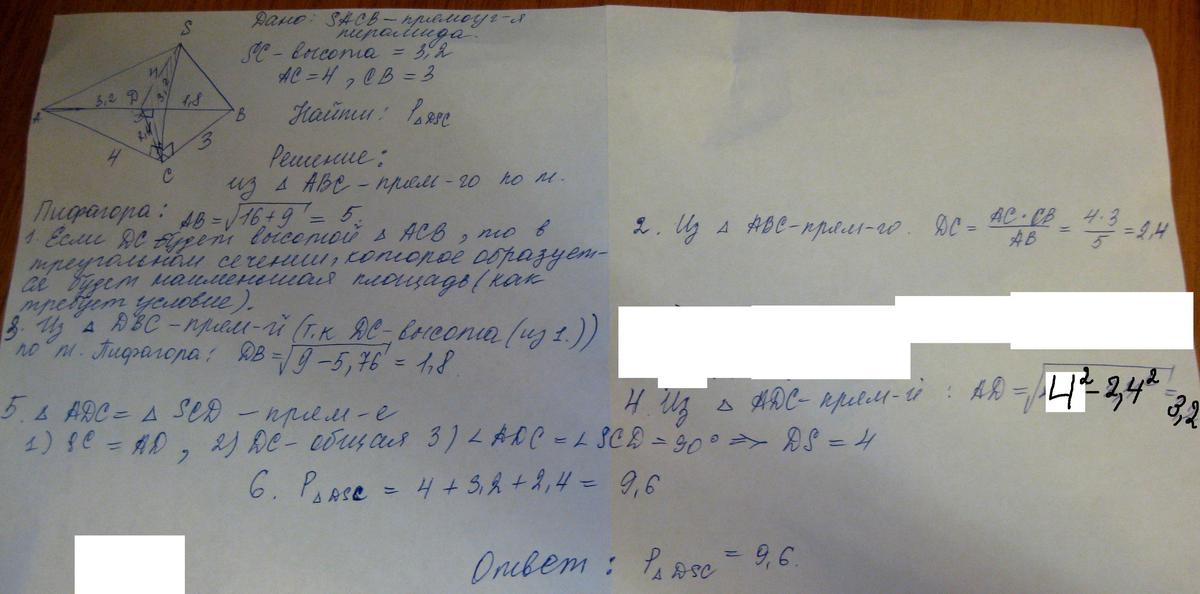 S
Дано: SACB – прямоуг-я
пирамида.
SC – высота = 3,2
AC = 4, CB = 3
Найти: P△DSC
A 3,2 D 3,2 1,8 B
4 3
C
Решение:
из △ ABC – прям-го по т.
Пифагора: AB = √16+9 = 5.
1. Если DC будет высотой △ ACB, то в
треугольном сечении, которое образует-
ся будет наименьшая площадь (как
требует условие).
2. Из △ ABC – прям-го. DC = AC · CB / AB = 4·3 / 5 = 2,4
3. Из △ DBC – прям-й (т.к DC – высота (из 1.))
по т. Пифагора: DB = √9 – 5,76 = 1,8.
4. Из △ ADC – прям-й : AD = √4² – 2,4² = 3,2
5. △ ADC = △ SCD – прям-е
1) SC = AD, 2) DC – общая 3) ∠ADC = ∠SCD = 90° => DS = 4
6. P△DSC = 4 + 3,2 + 2,4 = 9,6
Ответ: P△DSC = 9,6.